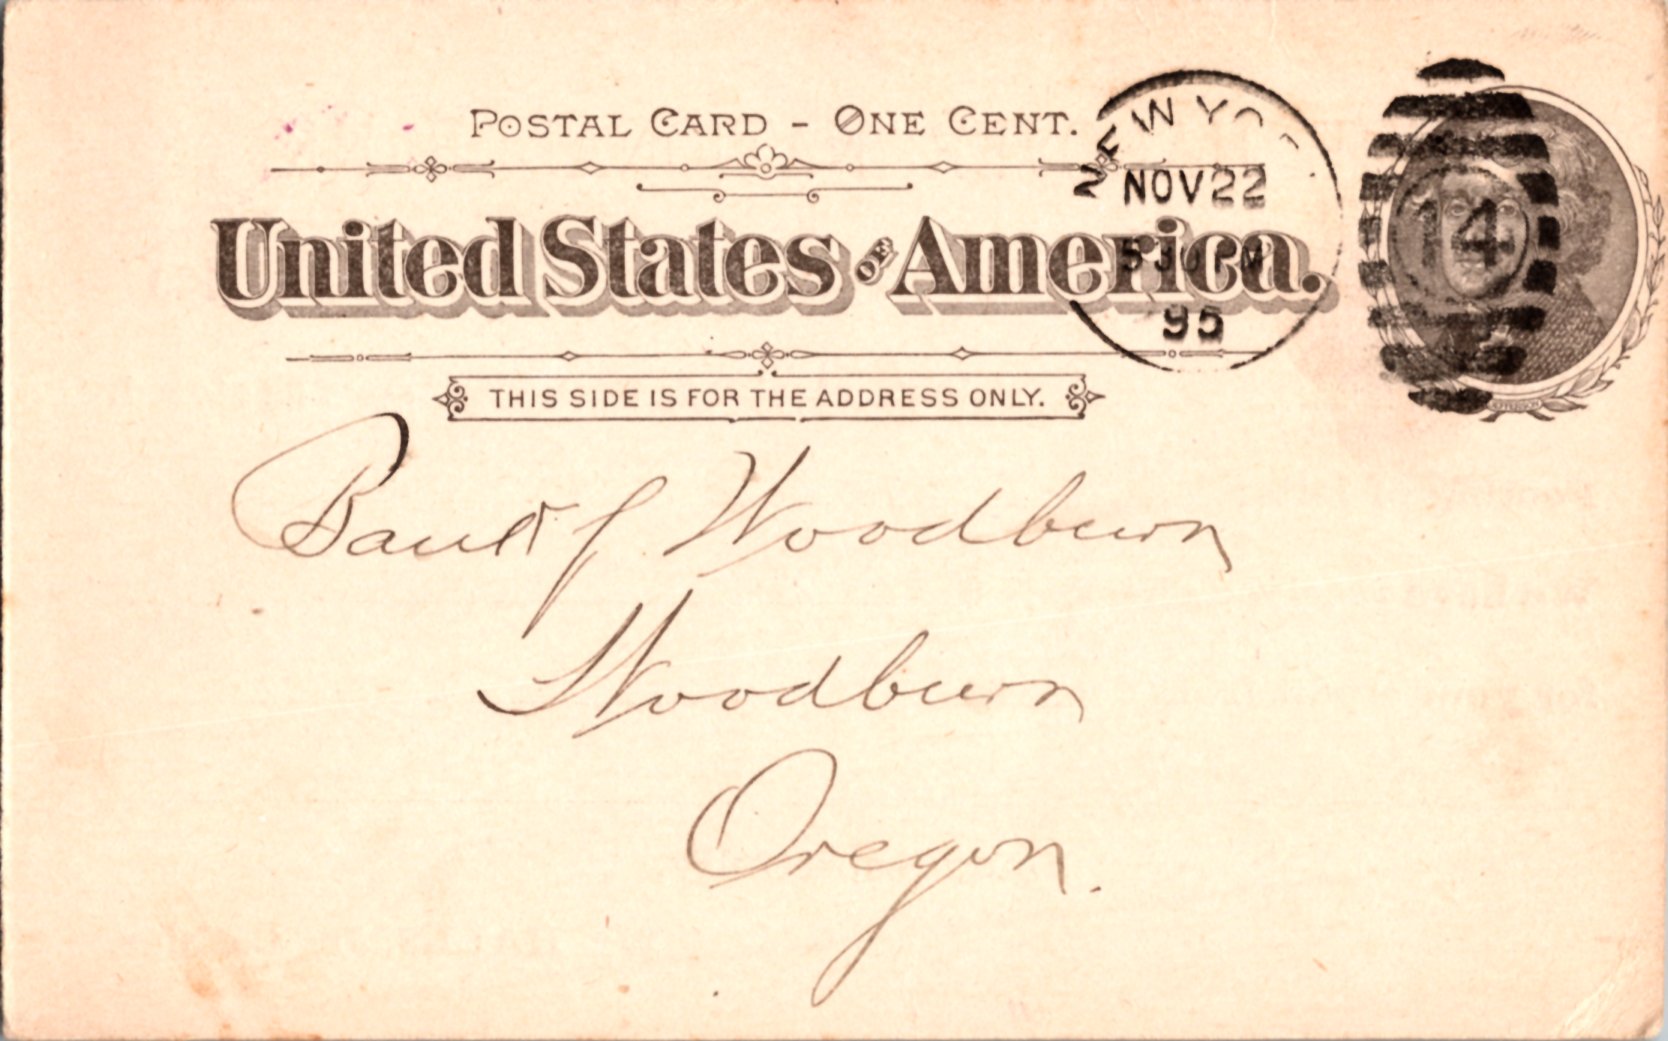 POSTAL CARD - ONE CENT.
United States OF America.
THIS SIDE IS FOR THE ADDRESS ONLY.
NEW YO
NOV 22
5 30 PM
95
14
Bank of Woodburn
Woodburn
Oregon.